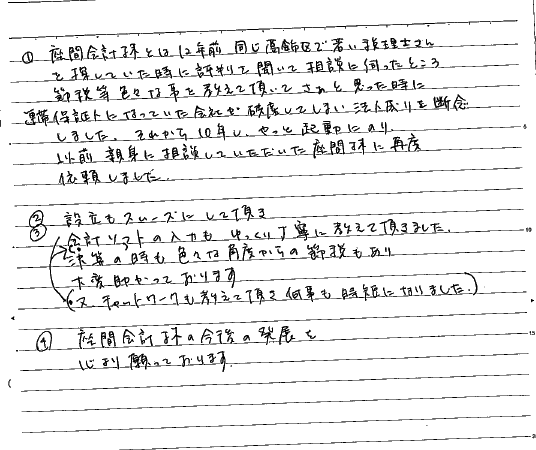 ① 座間会計様とは12年前 同じ高齢区で若い税理士さん
を探していた時に評判を聞いて相談に伺ったところ
節税等色々な事を教えて頂いて されと思った時に
連帯保証人になっていた会社が破産してしまい 法人成りを断念
しました。それから10年し、やっと起動にのり
以前 親身に相談していただいた座間様に再度
依頼しました。
② 設立もスムーズにして頂き
③ 会計ソフトの入力も ゆっくり丁寧に教えて頂きました。
決算の時も色々な角度からの節税もあり
大変助かっております
(又 チャットワークも教えて頂き 何事も時短に切りました。)
④ 座間会計様の今後の発展を
心より願っております。